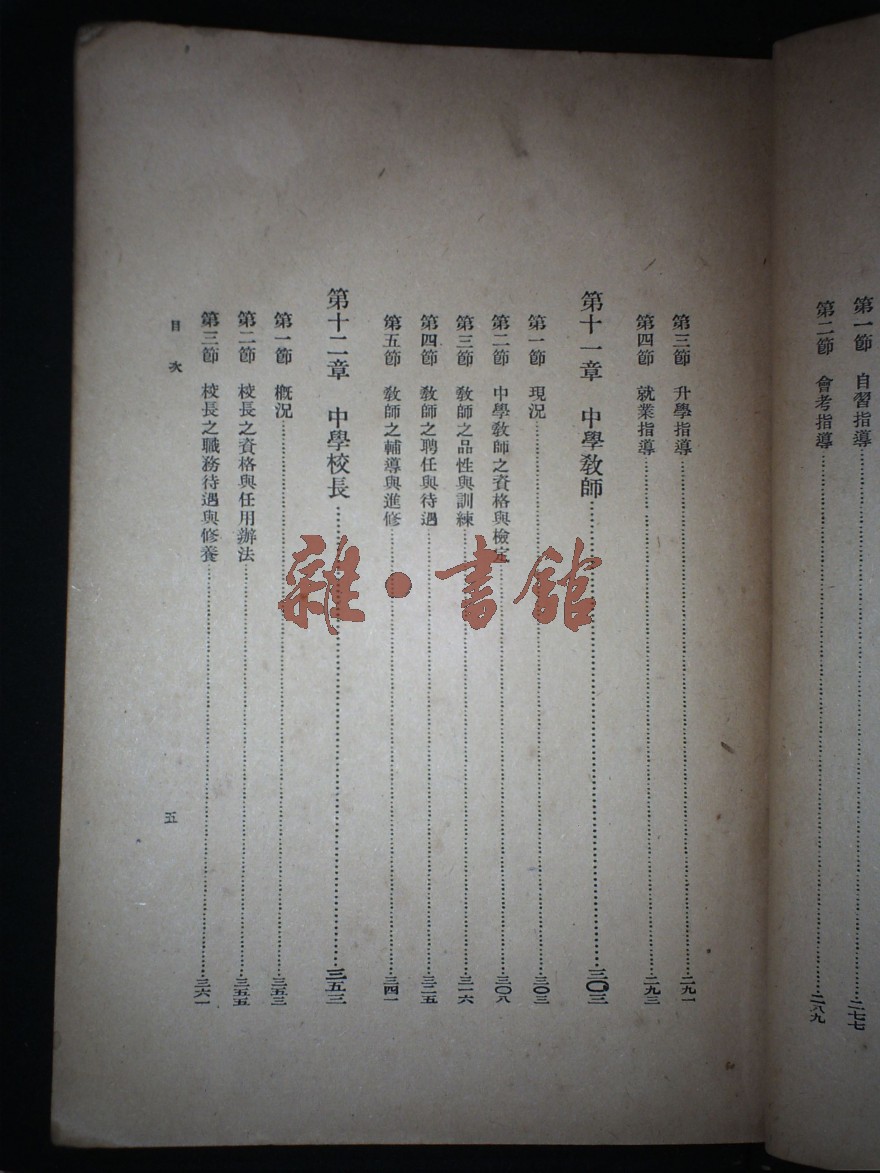 第一節　自習指導……二七七
第二節　會考指導……二八九
第三節　升學指導……二九一
第四節　就業指導……二九三
第十一章　中學教師……三〇三
第一節　現況……三〇三
第二節　中學教師之資格與檢定……三〇八
第三節　教師之品性與訓練……三一六
第四節　教師之聘任與待遇……三二五
第五節　教師之輔導與進修……三四一
第十二章　中學校長……三五三
第一節　概況……三五三
第二節　校長之資格與任用辦法……三五五
第三節　校長之職務待遇與修養……三六一
目次
五
雜·書館